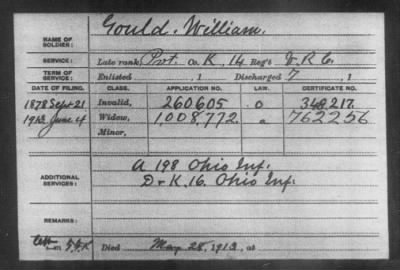 Gould. William.
NAME OF SOLDIER:
SERVICE: Late rank, Pvt. Co. K, 14 Reg't V.R.C.
TERM OF SERVICE: Enlisted , 1 Discharged 7 , 1
DATE OF FILING. CLASS. APPLICATION NO. LAW. CERTIFICATE NO.
1878 Sept 21 Invalid, 260605 348,217.
1913 June 4 Widow, 1,008,772. a 762256
Minor,
ADDITIONAL SERVICES:
A 198 Ohio Inf.
D + K, 16. Ohio Inf.
REMARKS:
Died May 28, 1913, at